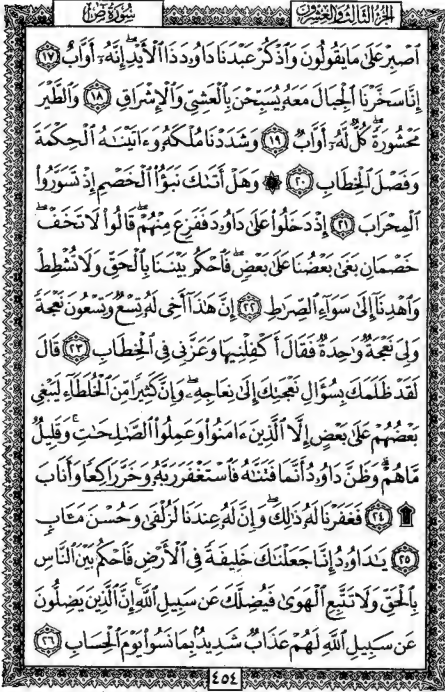 سُورَةُ صٓ الجُزْءُ الثَّالِثُ وَالعِشْرُونَ
ٱصْبِرْ عَلَىٰ مَا يَقُولُونَ وَٱذْكُرْ عَبْدَنَا دَاوُۥدَ ذَا ٱلْأَيْدِۖ إِنَّهُۥٓ أَوَّابٌ ١٧
إِنَّا سَخَّرْنَا ٱلْجِبَالَ مَعَهُۥ يُسَبِّحْنَ بِٱلْعَشِىِّ وَٱلْإِشْرَاقِ ١٨ وَٱلطَّيْرَ
مَحْشُورَةًۖ كُلٌّ لَّهُۥٓ أَوَّابٌ ١٩ وَشَدَدْنَا مُلْكَهُۥ وَءَاتَيْنَٰهُ ٱلْحِكْمَةَ
وَفَصْلَ ٱلْخِطَابِ ٢٠ ۞ وَهَلْ أَتَىٰكَ نَبَؤُا۟ ٱلْخَصْمِ إِذْ تَسَوَّرُوا۟
ٱلْمِحْرَابَ ٢١ إِذْ دَخَلُوا۟ عَلَىٰ دَاوُۥدَ فَفَزِعَ مِنْهُمْۖ قَالُوا۟ لَا تَخَفْۖ
خَصْمَانِ بَغَىٰ بَعْضُنَا عَلَىٰ بَعْضٍ فَٱحْكُم بَيْنَنَا بِٱلْحَقِّ وَلَا تُشْطِطْ
وَٱهْدِنَآ إِلَىٰ سَوَآءِ ٱلصِّرَٰطِ ٢٢ إِنَّ هَٰذَآ أَخِى لَهُۥ تِسْعٌ وَتِسْعُونَ نَعْجَةً
وَلِىَ نَعْجَةٌ وَٰحِدَةٌ فَقَالَ أَكْفِلْنِيهَا وَعَزَّنِى فِى ٱلْخِطَابِ ٢٣ قَالَ
لَقَدْ ظَلَمَكَ بِسُؤَالِ نَعْجَتِكَ إِلَىٰ نِعَاجِهِۦۖ وَإِنَّ كَثِيرًا مِّنَ ٱلْخُلَطَآءِ لَيَبْغِى
بَعْضُهُمْ عَلَىٰ بَعْضٍ إِلَّا ٱلَّذِينَ ءَامَنُوا۟ وَعَمِلُوا۟ ٱلصَّٰلِحَٰتِ وَقَلِيلٌ
مَّا هُمْۗ وَظَنَّ دَاوُۥدُ أَنَّمَا فَتَنَّٰهُ فَٱسْتَغْفَرَ رَبَّهُۥ وَخَرَّ رَاكِعًا وَأَنَابَ
۩ ٢٤ فَغَفَرْنَا لَهُۥ ذَٰلِكَۖ وَإِنَّ لَهُۥ عِندَنَا لَزُلْفَىٰ وَحُسْنَ مَـَٔابٍ
٢٥ يَٰدَاوُۥدُ إِنَّا جَعَلْنَٰكَ خَلِيفَةً فِى ٱلْأَرْضِ فَٱحْكُم بَيْنَ ٱلنَّاسِ
بِٱلْحَقِّ وَلَا تَتَّبِعِ ٱلْهَوَىٰ فَيُضِلَّكَ عَن سَبِيلِ ٱللَّهِۚ إِنَّ ٱلَّذِينَ يَضِلُّونَ
عَن سَبِيلِ ٱللَّهِ لَهُمْ عَذَابٌ شَدِيدٌۢ بِمَا نَسُوا۟ يَوْمَ ٱلْحِسَابِ ٢٦
٤٥٤